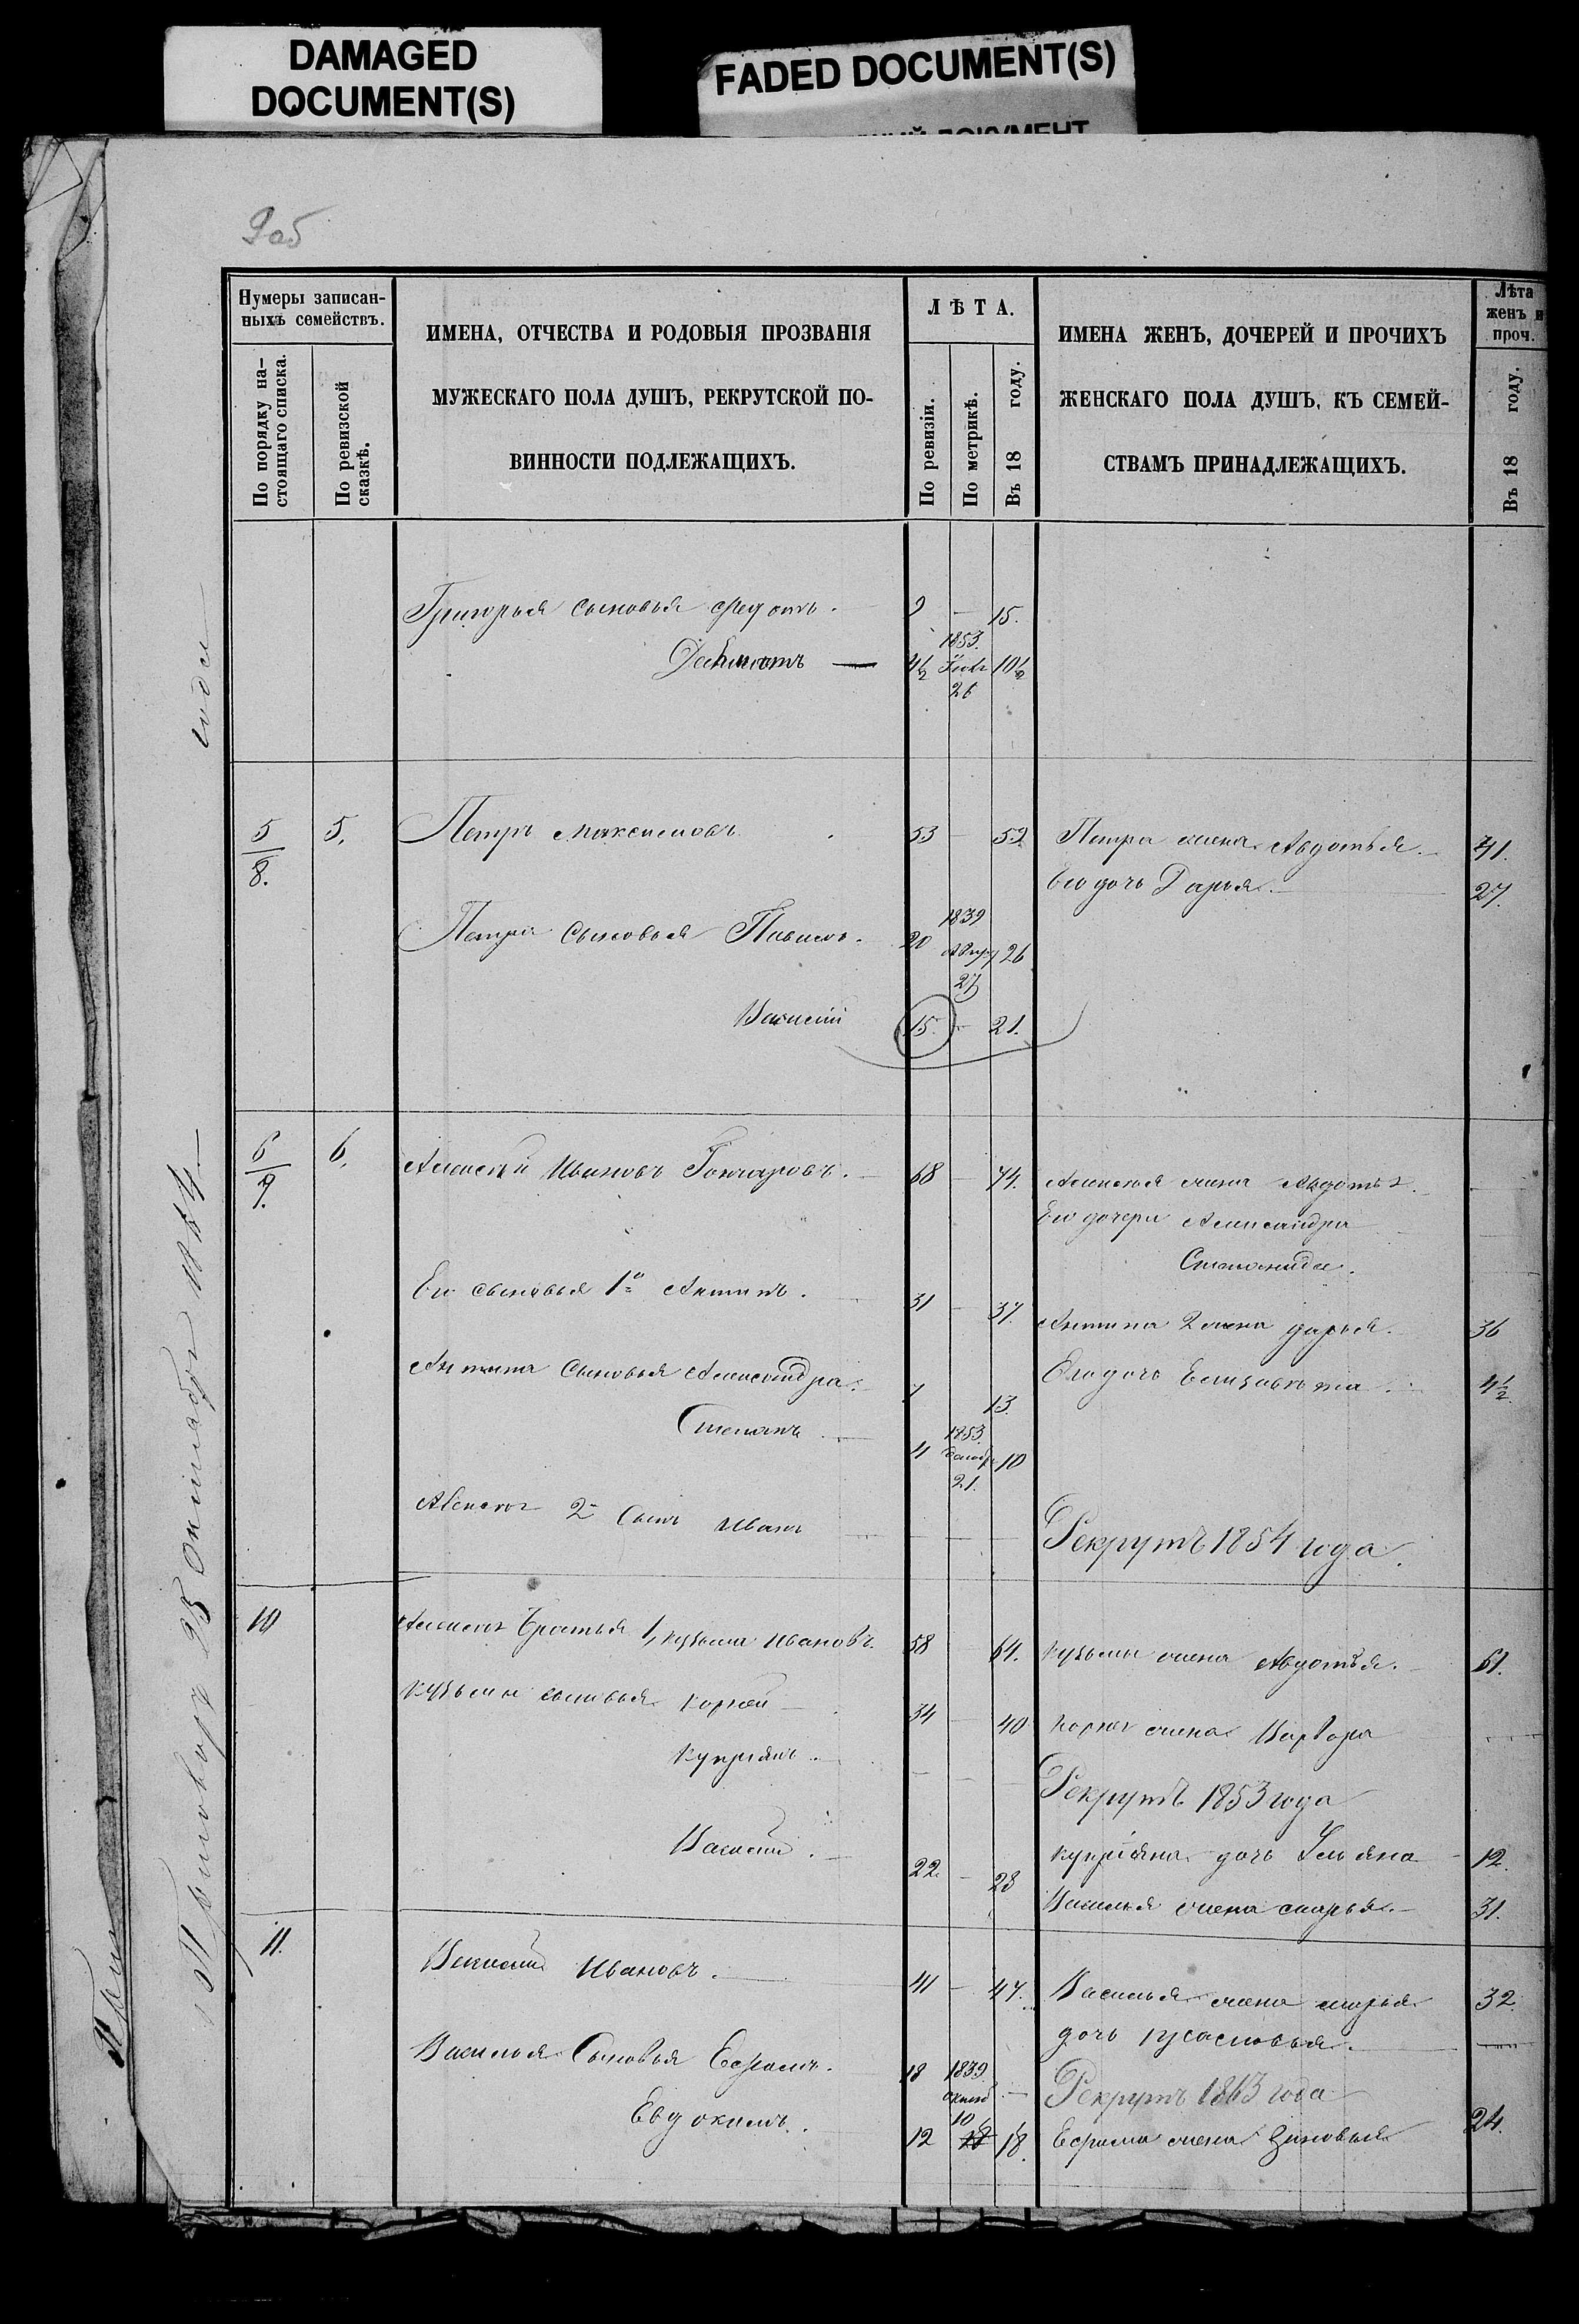 DAMAGED
DOCUMENT(S)
FADED DOCUMENT(S)
9 об
Нумеры записан-
ныхъ семействъ.
По порядку на-
стоящаго списка.
По ревизской
сказкѣ.
ИМЕНА, ОТЧЕСТВА И РОДОВЫЯ ПРОЗВАНІЯ
МУЖЕСКАГО ПОЛА ДУШЪ, РЕКРУТСКОЙ ПО-
ВИННОСТИ ПОДЛЕЖАЩИХЪ.
ЛѢТА.
По ревизіи.
По метрикѣ.
Въ 18 году.
ИМЕНА ЖЕНЪ, ДОЧЕРЕЙ И ПРОЧИХЪ
ЖЕНСКАГО ПОЛА ДУШЪ, КЪ СЕМЕЙ-
СТВАМЪ ПРИНАДЛЕЖАЩИХЪ.
Лѣта
женъ и
проч.
Въ 18 году.
Григорья сыновья Федотъ. 9 — 15.
4½ 1853 26 10½
5/8. 5. Петръ Максимовъ 53 — 59 Петра жена Авдотья. 41.
Его дочь Дарья. 27.
Петра сыновья Павелъ. 20 1839 27 26
Василій 15 — 21.
6/9. 6. Алексѣй Ивановъ Гончаровъ. 68 — 74. Алексѣя жена Авдотья.
Его дочери Александра
Степанида.
Его сыновья 1й Антипъ. 31 — 37. Антипа 2 жена Дарья. 36
Антипа сыновья Александра. 7 13. Его дочь Елизавета. 4½
Степанъ 4 1853 декабр 21. 10
Алексѣя 2й сынъ Иванъ — — — Рекрутъ 1854 года.
10 Алексѣя братья 1, Кузьма Ивановъ. 58 64. Кузьмы жена Авдотья. 61.
Кузьмы сыновья Корнѣй 34 — 40 Корнѣя жена Варвара
Купріянъ. — — — Рекрутъ 1853 года
Купріяна дочь Ульяна 12.
Василій. 22. — 28 Василья жена Марья. 31.
11. Василій Ивановъ. 41 — 47. Василья жена Марья 32
дочь
Василья сыновья Ефремъ. 18 1839 октяб 10 — Рекрутъ 1863 года
Евдокимъ. 12 18. Ефрема жена Зиновья 24.
года
октября 25 1864